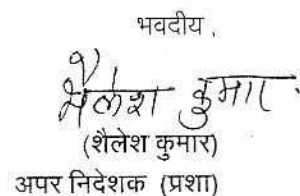 भवदीय,
शैलेश कुमार
(शैलेश कुमार)
अपर निदेशक (प्रशा)